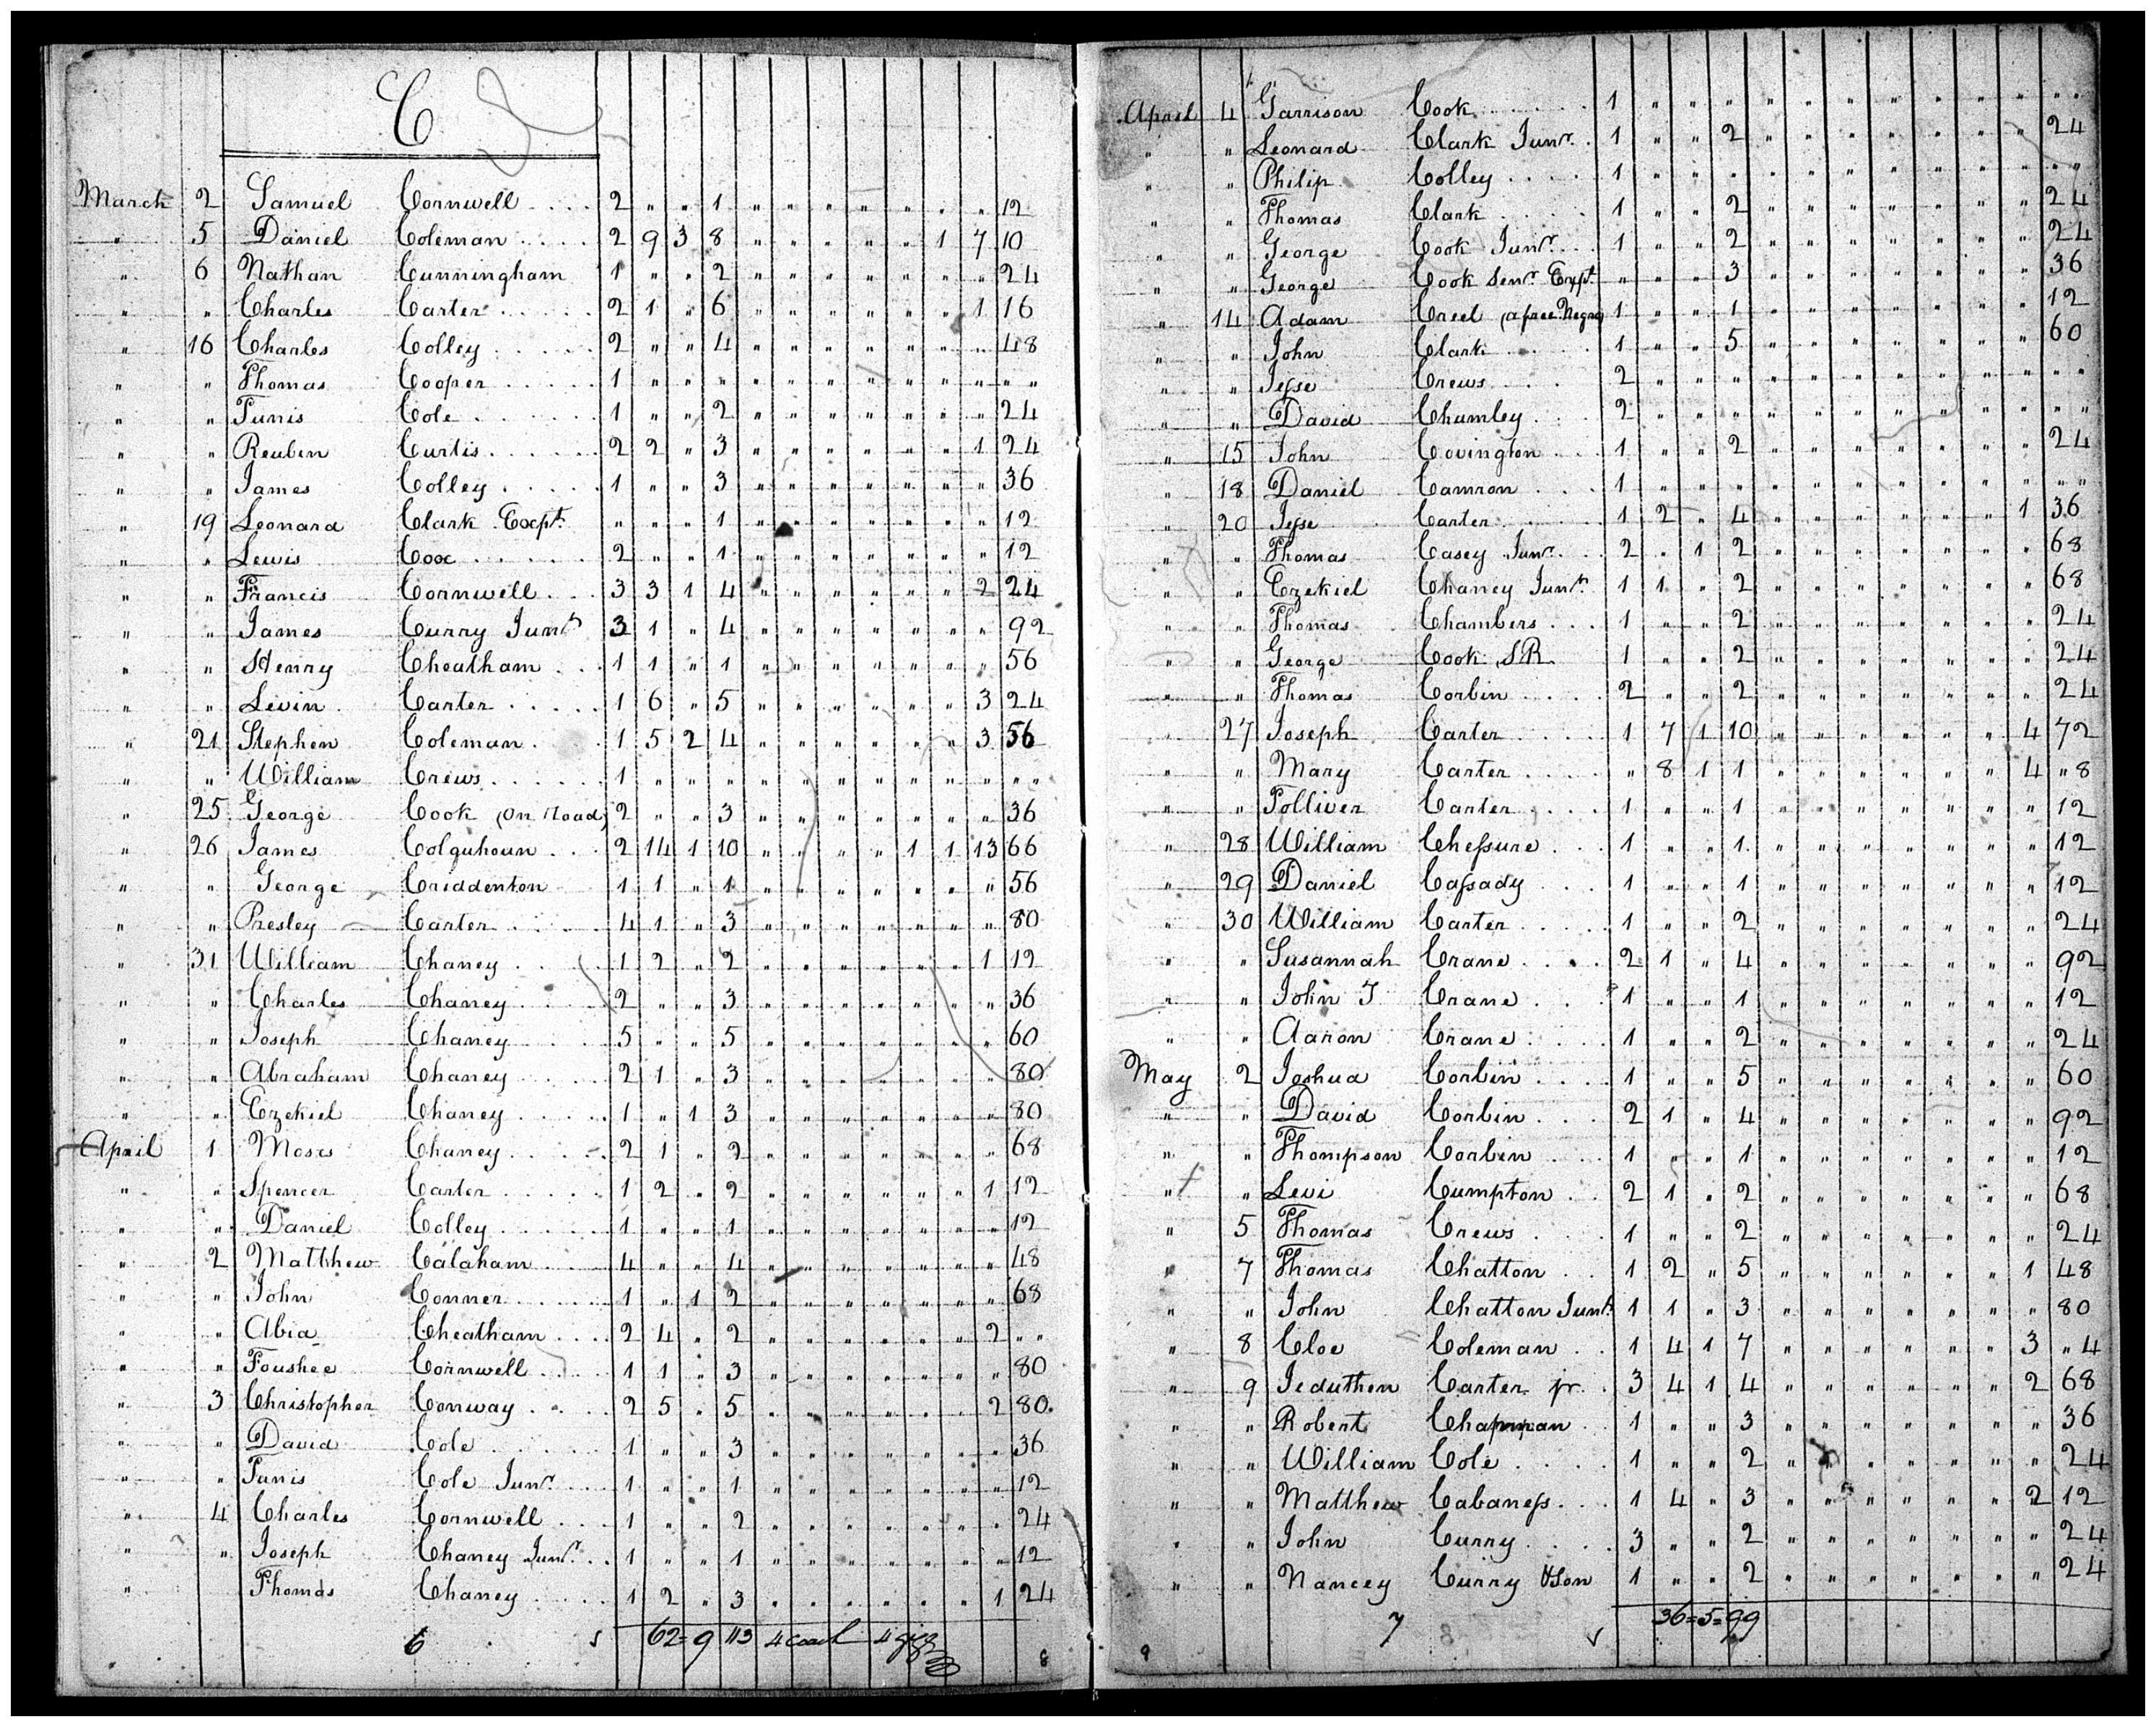 C
March 2 Samuel Cornwell . . . . 2 " " 1 " " " " " " " 12
" 5 Daniel Coleman . . . . 2 9 3 8 " " " " " 1 7 10
" 6 Nathan Cunningham 1 " " 2 " " " " " " " 24
" " Charles Carter . . . . . 2 1 " 6 " " " " " " 1 16
" 16 Charles Colley . . . . . 2 " " 4 " " " " " " " 48
" " Thomas Cooper . . . . . 1 " " " " " " " " " " " "
" " Tunis Cole . . . . . 1 " " 2 " " " " " " " 24
" " Reuben Curtis . . . . . 2 2 " 3 " " " " " " 1 24
" " James Colley . . . . . 1 " " 3 " " " " " " " 36
" 19 Leonard Clark Expt " " " 1 " " " " " " " 12
" " Lewis Cox . . . . . 2 " " 1 " " " " " " " 12
" " Francis Cornwell . . . 3 3 1 4 " " " " " " 2 24
" " James Curry Junr 3 1 " 4 " " " " " " " 92
" " Henry Cheatham . . 1 1 " 1 " " " " " " " 56
" " Levin Carter . . . . . 1 6 " 5 " " " " " " 3 24
" 21 Stephen Coleman . . 1 5 2 4 " " " " " " 3 56
" " William Crews . . . . . 1 " " " " " " " " " " " "
" 25 George Cook (On Road) 2 " " 3 " " " " " " " 36
" 26 James Colquhoun . . . 2 14 1 10 " " " " 1 1 13 66
" " George Criddenton 1 1 " 1 " " " " " " " 56
" " Presley Carter . . . . 4 1 " 3 " " " " " " " 80
" 31 William Chaney . . . 1 2 " 2 " " " " " " 1 12
" " Charles Chaney . . . . 2 " " 3 " " " " " " " 36
" " Joseph Chaney . . . . 5 " " 5 " " " " " " " 60
" " Abraham Chaney . . . . 2 1 " 3 " " " " " " " 80
" " Ezekiel Chaney . . . . 1 " 1 3 " " " " " " " 80
April 1 Moses Chaney . . . . 2 1 " 2 " " " " " " " 68
" " Spencer Carter . . . . . 1 2 " 2 " " " " " " 1 12
" " Daniel Colley . . . . . 1 " " 1 " " " " " " " 12
" 2 Matthew Calaham . . . 4 " " 4 " " " " " " " 48
" " John Conner . . . . . 1 " 1 2 " " " " " " " 68
" " Abia Cheatham . . . . 2 4 " 2 " " " " " " 2 " "
" " Foushee Cornwell . . . 1 1 " 3 " " " " " " " 80
" 3 Christopher Conway . . . 2 5 " 5 " " " " " " 2 80
" " David Cole . . . . . 1 " " 3 " " " " " " " 36
" " Tunis Cole Junr . . . 1 " " 1 " " " " " " " 12
" 4 Charles Cornwell . . . 1 " " 2 " " " " " " " 24
" " Joseph Chaney Junr . . 1 " " 1 " " " " " " " 12
" Thomas Chaney . . . . 1 2 " 3 " " " " " " 1 24
62 = 9 113 4 coach 4 gigs
6
8
April 4 Garrison Cook . . . . . 1 " " " " " " " " " " " "
" " Leonard Clark Junr . 1 " " 2 " " " " " " " 24
" " Philip Colley . . . . 1 " " " " " " " " " " " "
" " Thomas Clark . . . . 1 " " 2 " " " " " " " 24
" " George Cook Junr . . 1 " " 2 " " " " " " " 24
" " George Cook Senr Expt " " " 3 " " " " " " " 36
" 14 Adam Creel (a free Negro) 1 " " 1 " " " " " " " 12
" " John Clark . . . 1 " " 5 " " " " " " " 60
" " Jesse Crews . . . 2 " " " " " " " " " " " "
" " David Chumley . . 2 " " " " " " " " " " " "
" 15 John Covington . . . 1 " " 2 " " " " " " " 24
" 18 Daniel Camron . . . 1 " " " " " " " " " " " "
" 20 Jesse Carter . . . . 1 2 " 4 " " " " " " 1 36
" " Thomas Casey Junr . . 2 " 1 2 " " " " " " " 68
" " Ezekiel Chaney Junr 1 1 " 2 " " " " " " " 68
" " Thomas Chambers . . . 1 " " 2 " " " " " " " 24
" " George Cook S.R. 1 " " 2 " " " " " " " 24
" " Thomas Corbin . . . . 2 " " 2 " " " " " " " 24
" 27 Joseph Carter . . . . 1 7 1 10 " " " " " " 4 72
" " Mary Carter . . . . " 8 1 1 " " " " " " 4 " 8
" " Tolliver Carter . . . . 1 " " 1 " " " " " " " 12
" 28 William Chessure . . . 1 " " 1 " " " " " " " 12
" 29 Daniel Cassady . . . 1 " " 1 " " " " " " " 12
" 30 William Carter . . . . . 1 " " 2 " " " " " " " 24
" " Susannah Crane . . . . 2 1 " 4 " " " " " " " 92
" " John T Crane . . . 1 " " 1 " " " " " " " 12
" " Aaron Crane . . . . 1 " " 2 " " " " " " " 24
May 2 Joshua Corbin . . . . 1 " " 5 " " " " " " " 60
" " David Corbin . . . 2 1 " 4 " " " " " " " 92
" " Thompson Corbin . . . 1 " " 1 " " " " " " " 12
" " Levi Cumpton . . 2 1 " 2 " " " " " " " 68
" 5 Thomas Crews . . . . 1 " " 2 " " " " " " " 24
" 7 Thomas Chatton . . 1 2 " 5 " " " " " " 1 48
" " John Chatton Junr 1 1 " 3 " " " " " " " 80
" 8 Cloe Coleman . . 1 4 1 7 " " " " " " 3 " 4
" 9 Jeduthon Carter jr . 3 4 1 4 " " " " " " 2 68
" " Robert Chapman . . 1 " " 3 " " " " " " " 36
" " William Cole . . . . 1 " " 2 " " " " " " " 24
" " Matthew Cabaness . . . 1 4 " 3 " " " " " " 2 12
" " John Curry . . . . 3 " " 2 " " " " " " " 24
" " Nancey Curry & Son 1 " " 2 " " " " " " " 24
36 = 5 = 99
7
9